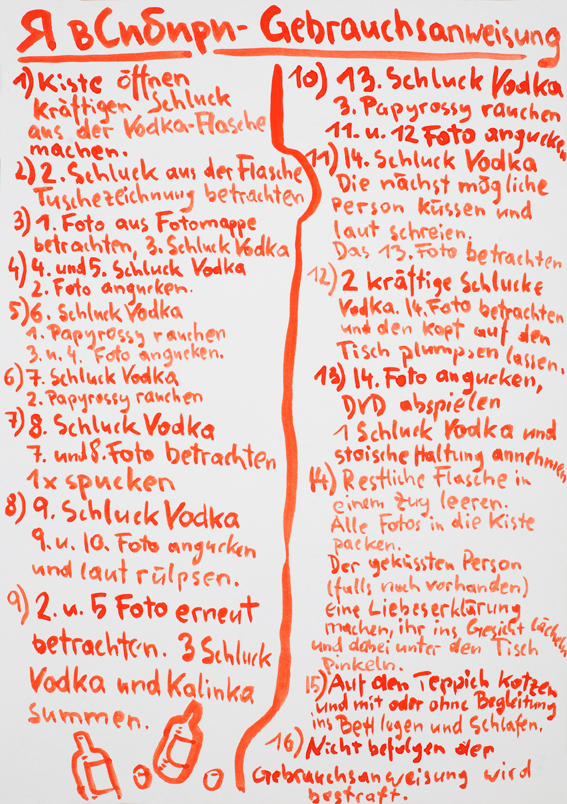 Я вСибири- Gebrauchsanweisung
1) Kiste öffnen
kräftigen Schluck
aus der Vodka-Flasche
machen.
2) 2. Schluck aus der Flasche
Tuschezeichnung betrachten
3) 1. Foto aus Fotomappe
betrachten, 3. Schluck Vodka
4) 4. und 5. Schluck Vodka
2. Foto angucken.
5) 6. Schluck Vodka
1. Papyrossy rauchen
3. u. 4. Foto angucken.
6) 7. Schluck Vodka
2. Papyrossy rauchen
7) 8. Schluck Vodka
7. und 8. Foto betrachten
1x spucken
8) 9. Schluck Vodka
9. u. 10. Foto angucken
und laut rülpsen.
9) 2. u. 5 Foto erneut
betrachten. 3 Schluck
Vodka und Kalinka
summen.
10) 13. Schluck Vodka
3. Papyrossy rauchen
11. u. 12 Foto angucken
11) 14. Schluck Vodka
Die nächst mögliche
Person küssen und
laut schreien.
Das 13. Foto betrachten
12) 2 kräftige Schlucke
Vodka. 14. Foto betrachten
und den Kopf auf den
Tisch plumpsen lassen.
13) 14. Foto angucken,
DVD abspielen
1 Schluck Vodka und
stoische Haltung annehmen
14) Restliche Flasche in
einem Zug leeren.
Alle Fotos in die Kiste
packen.
Der geküssten Person
(falls noch vorhanden)
eine Liebeserklärung
machen, ihr ins Gesicht lächeln
und dabei unter den Tisch
pinkeln.
15) Auf den Teppich kotzen
und mit oder ohne Begleitung
ins Bett legen und Schlafen.
16) Nicht befolgen der
Gebrauchsanweisung wird
bestraft.